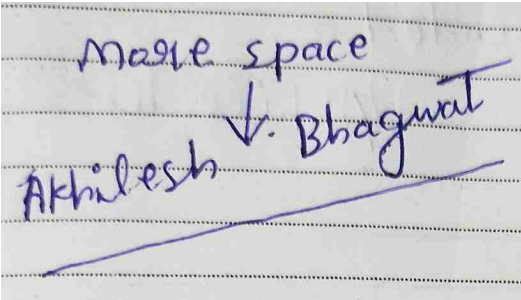 More space
↓
Akhilesh Bhagwat